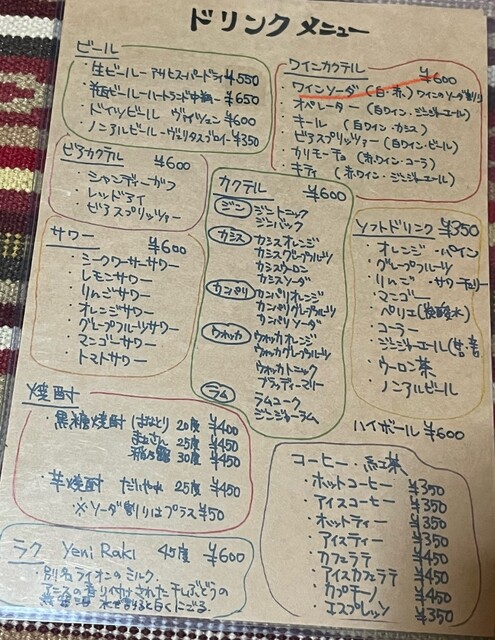 ドリンクメニュー
ビール
・生ビール―アサヒスーパードライ ¥550
・瓶ビール―ハートランド中瓶― ¥650
・ドイツビール ヴァイツェン ¥600
・ノンアルビール―ヴェリタスブロイ― ¥350
ビアカクテル ¥600
・シャンディーガフ
・レッドアイ
・ビアスプリッツァー
サワー ¥600
・シークワーサーサワー
・レモンサワー
・りんごサワー
・オレンジサワー
・グレープフルーツサワー
・マンゴーサワー
・トマトサワー
焼酎
・黒糖焼酎 はなとり 20度 ¥400
まぁさん 25度 ¥450
30度 ¥450
・芋焼酎 だいやめ 25度 ¥450
※ソーダ割りはプラス¥50
ラク Yeni Raki 45度 ¥600
・別名ライオンのミルク。
アニスの香り付けされた干しぶどうの
水で割ると白くにごる。
ワインカクテル ¥600
・ワインソーダ (白・赤) ワインのソーダ割り
・オペレーター (白ワイン・ジンジャーエール)
・キール (白ワイン・カシス)
・ビアスプリッツァー (白ワイン・ビール)
・カリモーチョ (赤ワイン・コーラ)
・キティ (赤ワイン・ジンジャーエール)
カクテル ¥600
ジン ジントニック
ジンバック
カシス カシスオレンジ
カシスグレープフルーツ
カシスウーロン
カシスソーダ
カンパリ カンパリオレンジ
カンパリグレープフルーツ
カンパリソーダ
ウォッカ ウォッカオレンジ
ウォッカグレープフルーツ
ウォッカトニック
ブラッディーマリー
ラム ラムコーク
ジンジャーラム
ソフトドリンク ¥350
・オレンジ ・パイン
・グレープフルーツ
・りんご ・サワーチェリー
・マンゴー
・ペリエ(炭酸水)
・コーラー
・ジンジャーエール(甘・辛)
・ウーロン茶
・ノンアルビール
ハイボール ¥600
コーヒー・紅茶
・ホットコーヒー ¥350
・アイスコーヒー ¥350
・ホットティー ¥350
・アイスティー ¥350
・カフェラテ ¥450
・アイスカフェラテ ¥450
・カプチーノ ¥450
・エスプレッソ ¥350